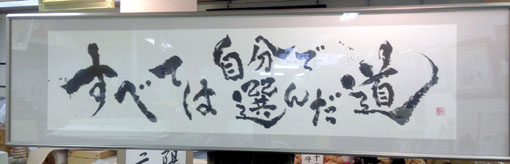 すべては自分で選んだ道